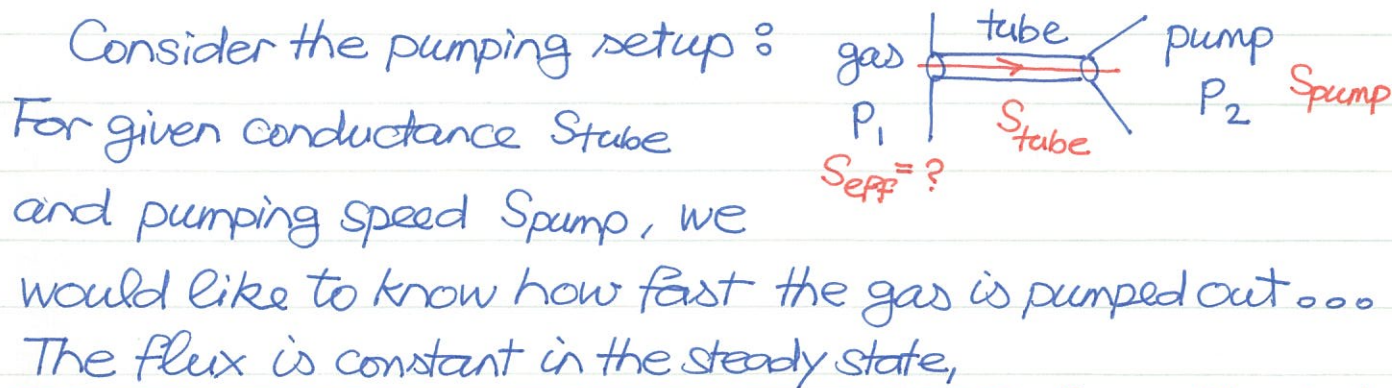 Consider the pumping setup :
gas tube pump
P₁ P₂ Spump
Stube
Seff = ?
For given conductance Stube
and pumping speed Spump, we
would like to know how fast the gas is pumped out...
The flux is constant in the steady state,